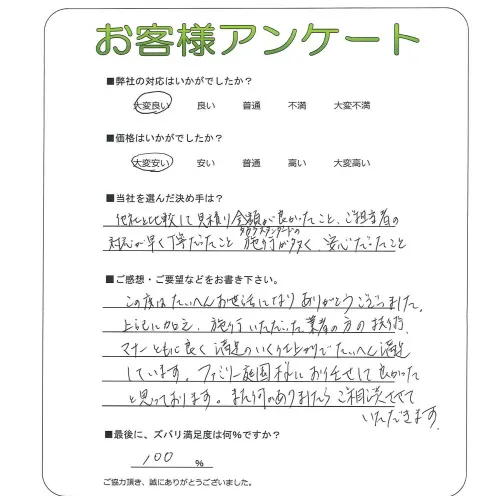 お客様アンケート
■弊社の対応はいかがでしたか？
大変良い 良い 普通 不満 大変不満
■価格はいかがでしたか？
大変安い 安い 普通 高い 大変高い
■当社を選んだ決め手は？
他社と比較して見積り金額が良かったこと、ご担当者の
対応が早く丁寧だったこと 施行が多く、安心だったこと
タカラスタンダードの
■ご感想・ご要望などをお書き下さい。
この度はたいへんお世話になりありがとうございました。
上記に加え、施行いただいた業者の方の挨拶
マナーともに良く満足のいく仕上がりでたいへん満足
しています。ファミリー庭園様にお任せして良かった
と思っております。また何かありましたらご相談させて
いただきます。
■最後に、ズバリ満足度は何%ですか？
100 %
ご協力頂き、誠にありがとうございました。